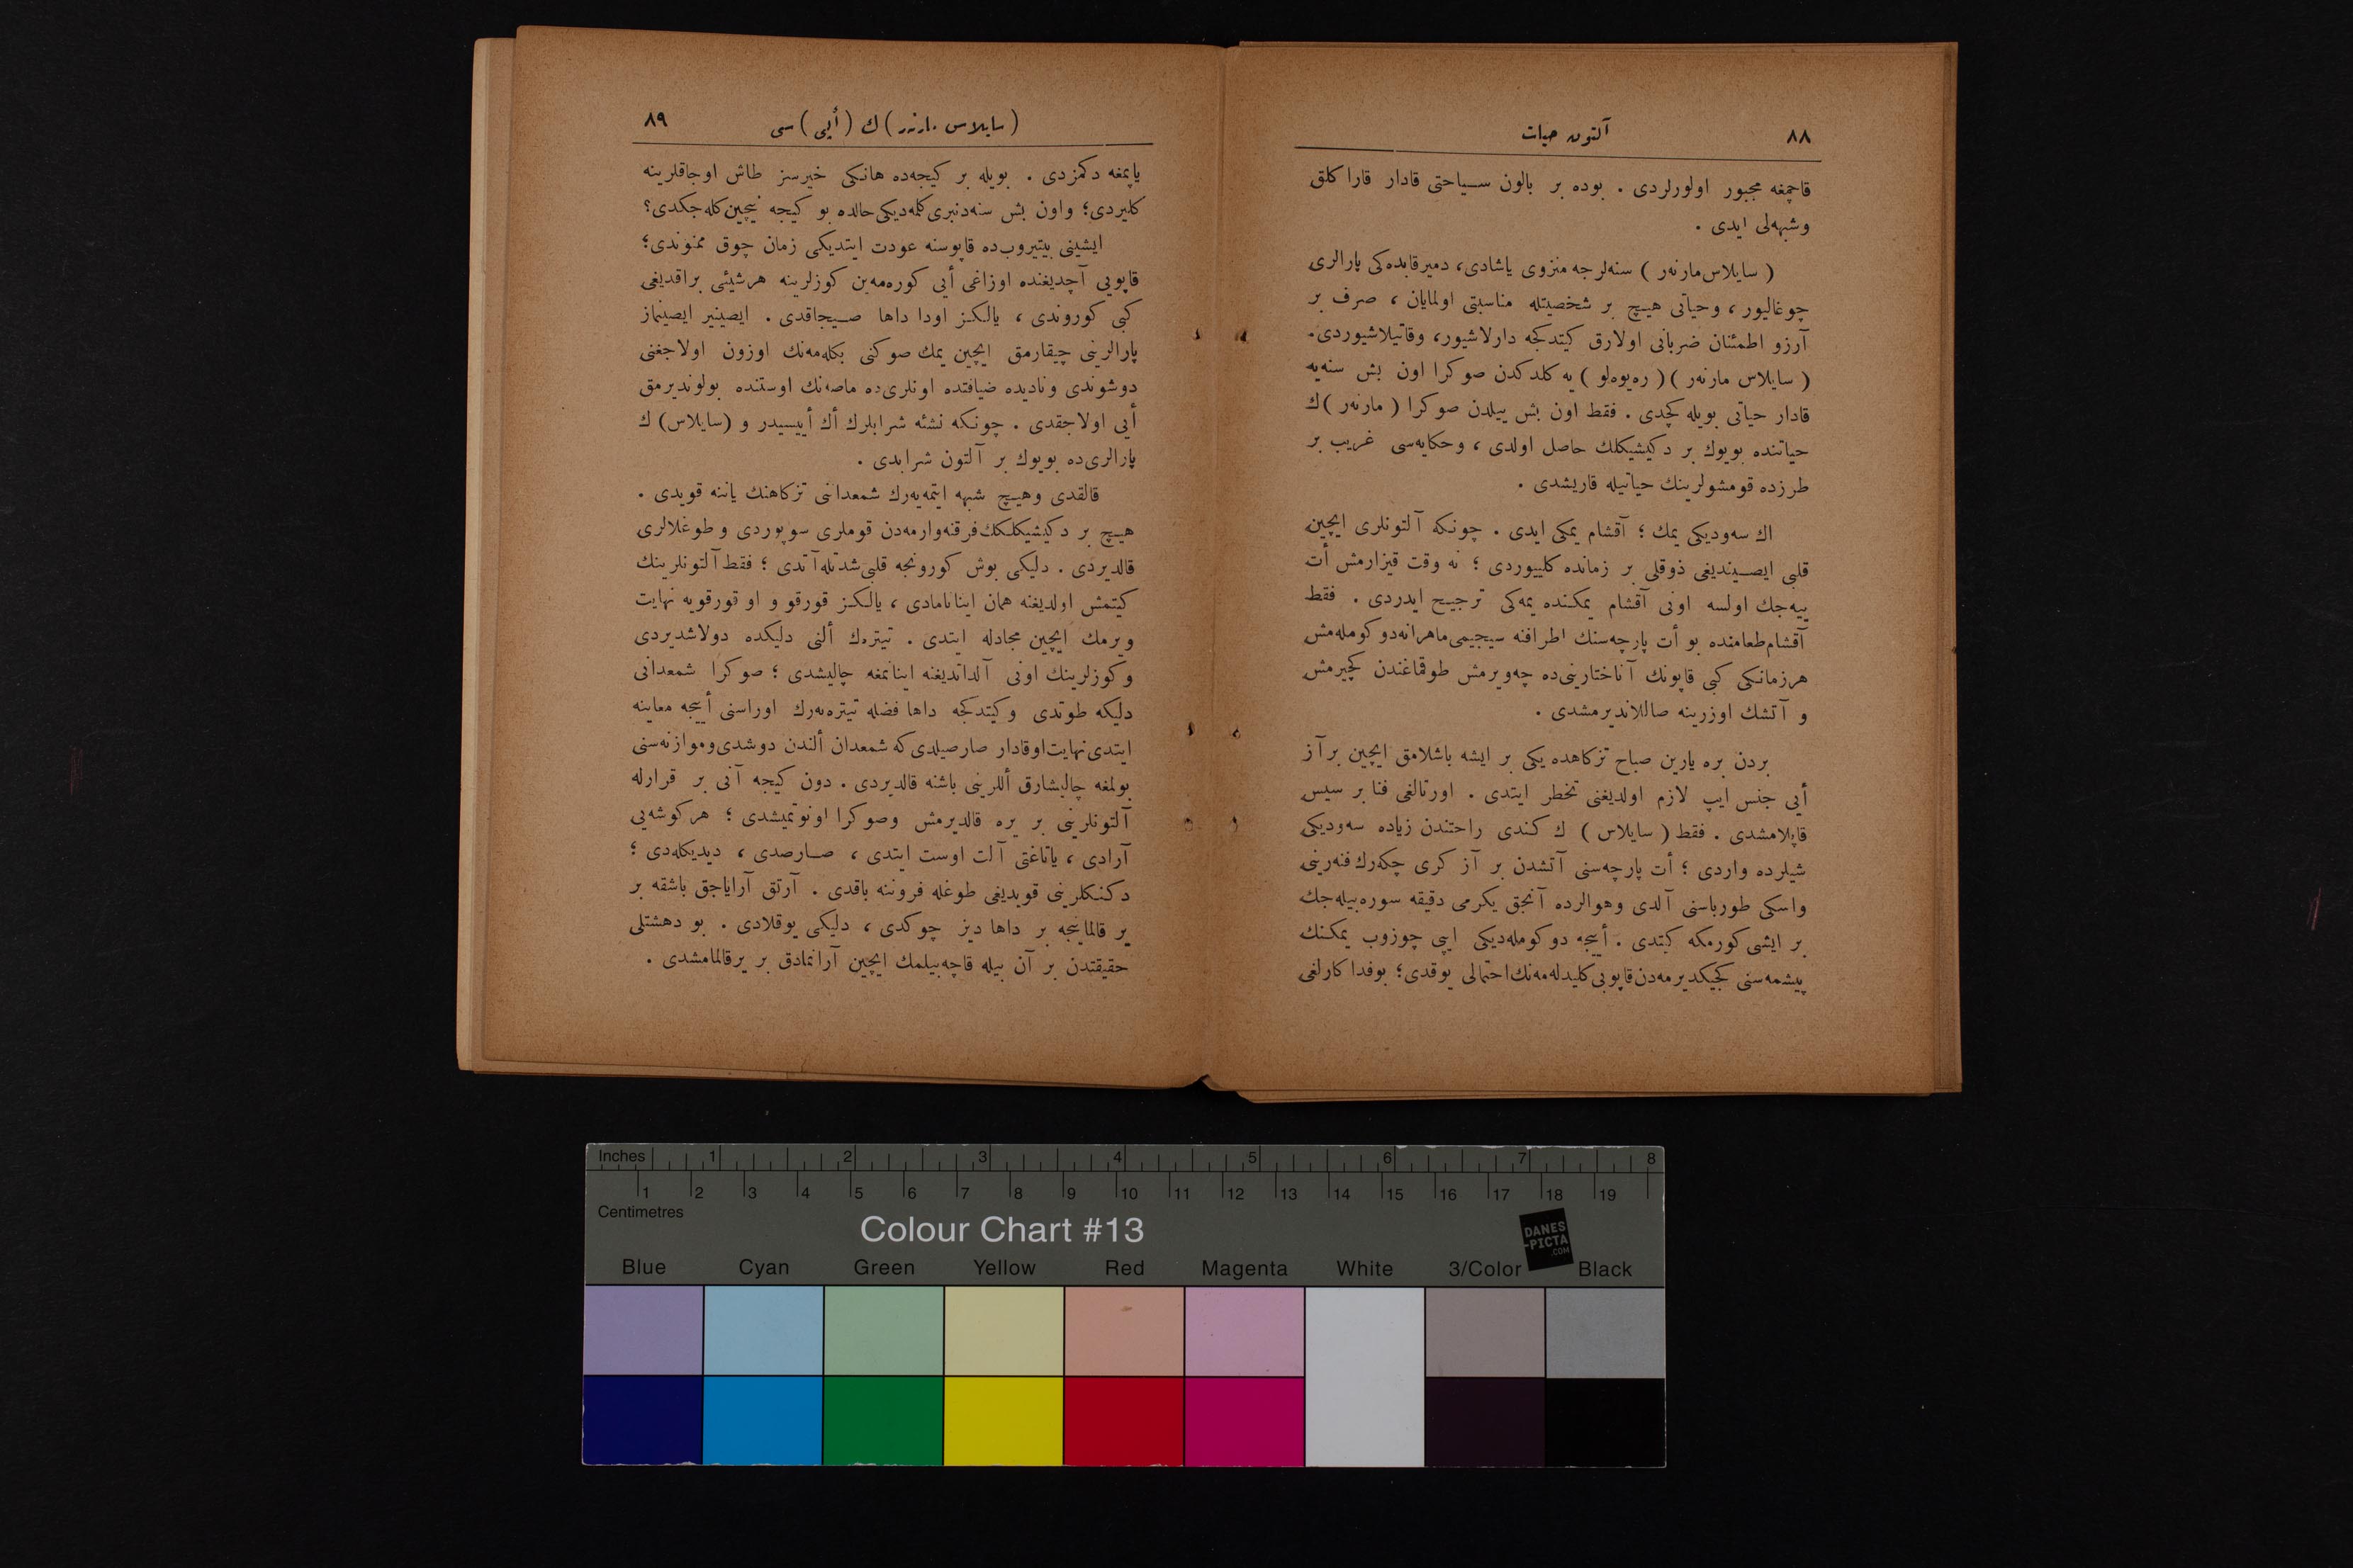 ٨٨
آلتون حيات
قاچمغه مجبور اولورلردی . بوده بر بالون سياحتی قادار قاراكلق
وشبهه‌لی ايدی .
( سايلاس مارنەر ) سنه‌لرجه منزوی ياشادی، دمير قابده‌كی پارالری
چوغاليور ، وحياتی هيچ بر شخصيتله مناسبتی اولمايان ، صرف بر
آرزو اطمئنان ضربانی اولارق كيتدكجه دارلاشيور، وقاتيلاشيوردی.
( سايلاس مارنەر ) ( رەيوەلو ) يه كلدكدن صوكرا اون بش سنه‌يه
قادار حياتی بويله كچدی . فقط اون بش ييلدن صوكرا ( مارنەر ) ك
حياتنده بويوك بر دكيشيكلك حاصل اولدی ، وحكايه‌سی غريب بر
طرزده قومشولرينك حياتيله قاريشدی .
اك سه‌وديكی يمك ؛ آقشام يمكی ايدی . چونكه آلتونلری ايچين
قلبی ايصينديغی ذوقلی بر زمانده كلييوردی ؛ نه وقت قيزارمش أت
ييه‌جك اولسه اونی آقشام يمكنده يمه‌كی ترجيح ايدردی . فقط
آقشام طعامنده بو أت پارچه‌سنك اطرافنه سيجيمی ماهرانه دوكومله‌مش
هرزمانكی كبی قاپونك آناختارينی‌ده چه‌ويرمش طوقماغندن كچيرمش
و آتشك اوزرينه صاللانديرمشدی .
بردن بره يارين صباح تزكاهده يكی بر ايشه باشلامق ايچين بر آز
أيی جنس ايپ لازم اولديغنی تخطر ايتدی . اورتالغی فنا بر سيس
قاپلامشدی . فقط ( سايلاس ) ك كندی راحتندن زياده سه‌وديكی
شيلرده واردی ؛ أت پارچه‌سنی آتشدن بر آز كری چكه‌رك فنه‌رينی
واسكی طورباسنی آلدی وهوالرده آنجق يكرمی دقيقه سوره‌بيله‌جك
بر ايشی كورمكه كيتدی . أييجه دوكومله‌ديكی ايپی چوزوب يمكنك
پيشمه‌سنی كجيكديرمه‌دن قاپويی كليدله‌مه‌نك احتمالی يوقدی؛ بوفدا كارلغی
( سايلاس مارنەر ) ك ( أيپی ) سی
٨٩
ياپمغه دكمزدی . بويله بر كيجه‌ده هانكی خيرسز طاش اوجاقلرينه
كليردی؛ واون بش سنه‌دنبری كلمه‌ديكی حالده بو كيجه نيچين كله‌جكدی؟
ايشينی بيتيروب‌ده قاپوسنه عودت ايتديكی زمان چوق ممنوندی؛
قاپويی آچديغنده اوزاغی أيی كوره‌مه‌ين كوزلرينه هر شيئی براقديغی
كبی كوروندی ، يالكز اودا داها صيجاقدی . ايصينير ايصينماز
پارالرينی چيقارمق ايچين يمك صوكنی بكله‌مه‌نك اوزون اولاجغنی
دوشوندی وناديده ضيافتده اونلری‌ده ماصه‌نك اوستنده بولونديرمق
أيی اولاجقدی . چونكه نشئه شرابلرك أك أييسيدر و (سايلاس) ك
پارالری‌ده بويوك بر آلتون شرابدی .
قالقدی وهيچ شبهه ايتمه‌يه‌رك شمعداننی تزكاهنك ياننه قويدی .
هيچ بر دكيشيكلكك فرقنه وارمه‌دن قوملری سوپوردی و طوغلالری
قالديردی . دليكی بوش كورونجه قلبی شدتله آتدی ؛ فقط آلتونلرينك
كيتمش اولديغنه همان اينانامادی ، يالكز قورقو و او قورقويه نهايت
ويرمك ايچين مجادله ايتدی . تيتره‌ك ألنی دليكده دولاشديردی
وكوزلرينك اونی آلداتديغنه اينانمغه چاليشدی ؛ صوكرا شمعدانی
دليكه طوتدی وكيتدكجه داها فضله تيتره‌يه‌رك اوراسنی أييجه معاينه
ايتدی نهايت اوقادار صارصيلدی كه شمعدان ألندن دوشدی وموازنه‌سنی
بولمغه چاليشارق أللرينی باشنه قالديردی . دون كيجه آنی بر قرارله
آلتونلرينی بر يره قالديرمش وصوكرا اونوتميشدی ؛ هر كوشه‌يی
آرادی ، ياتاغنی آلت اوست ايتدی ، صارصدی ، ديديكله‌دی ؛
دكنكلرينی قويديغی طوغله فروننه باقدی . آرتق آراياجق باشقه بر
ير قالماينجه بر داها ديز چوكدی ، دليكی يوقلادی . بو دهشتلی
حقيقتدن بر آن بيله قاچه‌بيلمك ايچين آرانمادق بر ير قالمامشدی .
Inches 1 2 3 4 5 6 7 8
1 2 3 4 5 6 7 8 9 10 11 12 13 14 15 16 17 18 19
Centimetres
Colour Chart #13
DANES
-PICTA
.COM
Blue Cyan Green Yellow Red Magenta White 3/Color Black